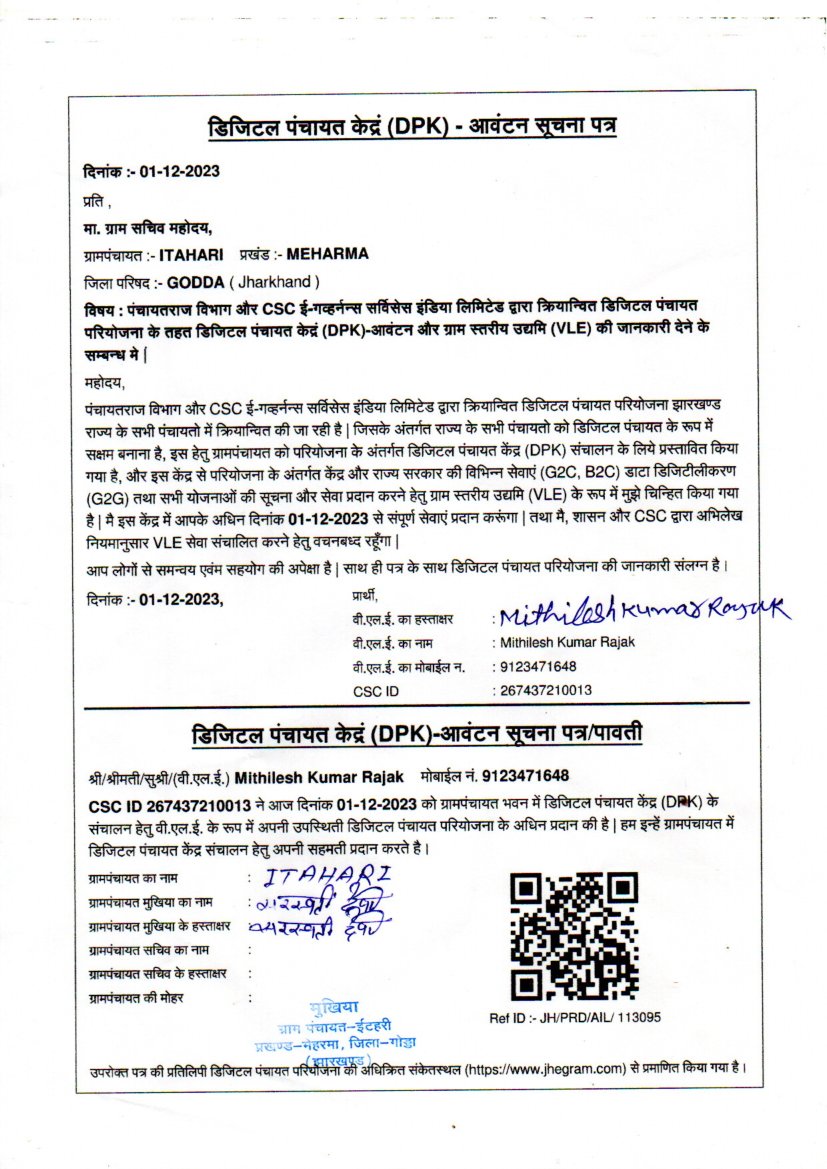 डिजिटल पंचायत केद्रं (DPK) - आवंटन सूचना पत्र
दिनांक :- 01-12-2023
प्रति ,
मा. ग्राम सचिव महोदय,
ग्रामपंचायत :- ITAHARI प्रखंड :- MEHARMA
जिला परिषद :- GODDA ( Jharkhand )
विषय : पंचायतराज विभाग और CSC ई-गव्हर्नन्स सर्विसेस इंडिया लिमिटेड द्वारा क्रियान्वित डिजिटल पंचायत
परियोजना के तहत डिजिटल पंचायत केद्रं (DPK)-आवंटन और ग्राम स्तरीय उद्यमि (VLE) की जानकारी देने के
सम्बन्ध मे |
महोदय,
पंचायतराज विभाग और CSC ई-गव्हर्नन्स सर्विसेस इंडिया लिमिटेड द्वारा क्रियान्वित डिजिटल पंचायत परियोजना झारखण्ड
राज्य के सभी पंचायतो में क्रियान्वित की जा रही है | जिसके अंतर्गत राज्य के सभी पंचायतो को डिजिटल पंचायत के रूप में
सक्षम बनाना है, इस हेतु ग्रामपंचायत को परियोजना के अंतर्गत डिजिटल पंचायत केंद्र (DPK) संचालन के लिये प्रस्तावित किया
गया है, और इस केंद्र से परियोजना के अंतर्गत केंद्र और राज्य सरकार की विभिन्न सेवाएं (G2C, B2C) डाटा डिजिटीलीकरण
(G2G) तथा सभी योजनाओं की सूचना और सेवा प्रदान करने हेतु ग्राम स्तरीय उद्यमि (VLE) के रूप में मुझे चिन्हित किया गया
है | मै इस केंद्र में आपके अधिन दिनांक 01-12-2023 से संपूर्ण सेवाएं प्रदान करूंगा | तथा मै, शासन और CSC द्वारा अभिलेख
नियमानुसार VLE सेवा संचालित करने हेतु वचनबध्द रहूँगा |
आप लोगों से समन्वय एवंम सहयोग की अपेक्षा है | साथ ही पत्र के साथ डिजिटल पंचायत परियोजना की जानकारी संलग्न है।
दिनांक :- 01-12-2023,
प्रार्थी,
वी.एल.ई. का हस्ताक्षर : Mithilesh Kumar Rajak
वी.एल.ई. का नाम : Mithilesh Kumar Rajak
वी.एल.ई. का मोबाईल न. : 9123471648
CSC ID : 267437210013
डिजिटल पंचायत केद्रं (DPK)-आवंटन सूचना पत्र/पावती
श्री/श्रीमती/सुश्री/(वी.एल.ई.) Mithilesh Kumar Rajak मोबाईल नं. 9123471648
CSC ID 267437210013 ने आज दिनांक 01-12-2023 को ग्रामपंचायत भवन में डिजिटल पंचायत केंद्र (DPK) के
संचालन हेतु वी.एल.ई. के रूप में अपनी उपस्थिती डिजिटल पंचायत परियोजना के अधिन प्रदान की है | हम इन्हें ग्रामपंचायत में
डिजिटल पंचायत केंद्र संचालन हेतु अपनी सहमती प्रदान करते है।
ग्रामपंचायत का नाम : ITAHARI
ग्रामपंचायत मुखिया का नाम : सरस्वती देवी
ग्रामपंचायत मुखिया के हस्ताक्षर सरस्वती देवी
ग्रामपंचायत सचिव का नाम :
ग्रामपंचायत सचिव के हस्ताक्षर :
ग्रामपंचायत की मोहर :
मुखिया
ग्राम पंचायत-ईटहरी
प्रखण्ड-मेहरमा, जिला-गोड्डा
(झारखण्ड)
Ref ID :- JH/PRD/AIL/ 113095
उपरोक्त पत्र की प्रतिलिपी डिजिटल पंचायत परियोजना की अधिक्रित संकेतस्थल (https://www.jhegram.com) से प्रमाणित किया गया है।